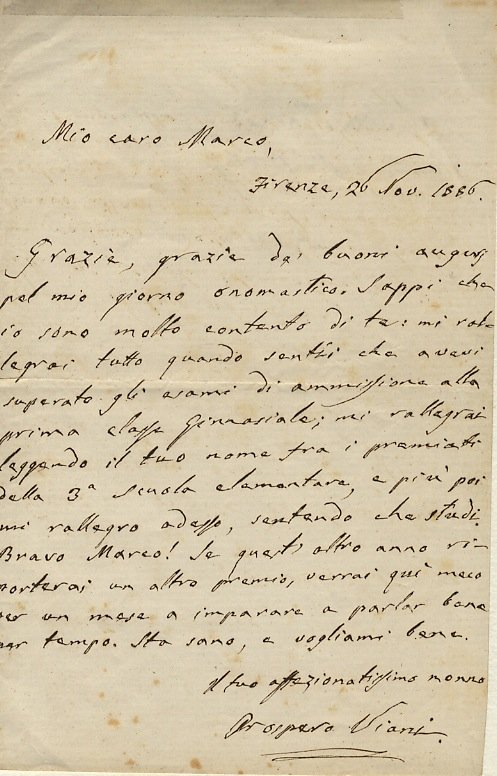 Mio caro Marco,
Firenze, 26 Nov. 1886.
Grazie, grazie de' buoni augurj
pel mio giorno onomastico. Sappi che
io sono molto contento di te: mi ral-
legrai tutto quando sentii che avevi
superato gli esami di ammissione alla
prima classe Ginnasiale; mi rallegrai
leggendo il tuo nome fra i premiati
della 3ª Scuola elementare, e più poi
mi rallegro adesso, sentendo che studi.
Bravo Marco! Se quest'altro anno ri-
porterai un altro premio, verrai quì meco
per un mese a imparare a parlar bene
per tempo. Sta sano, e vogliami bene.
Il tuo affezionatissimo nonno
Prospero Viani.